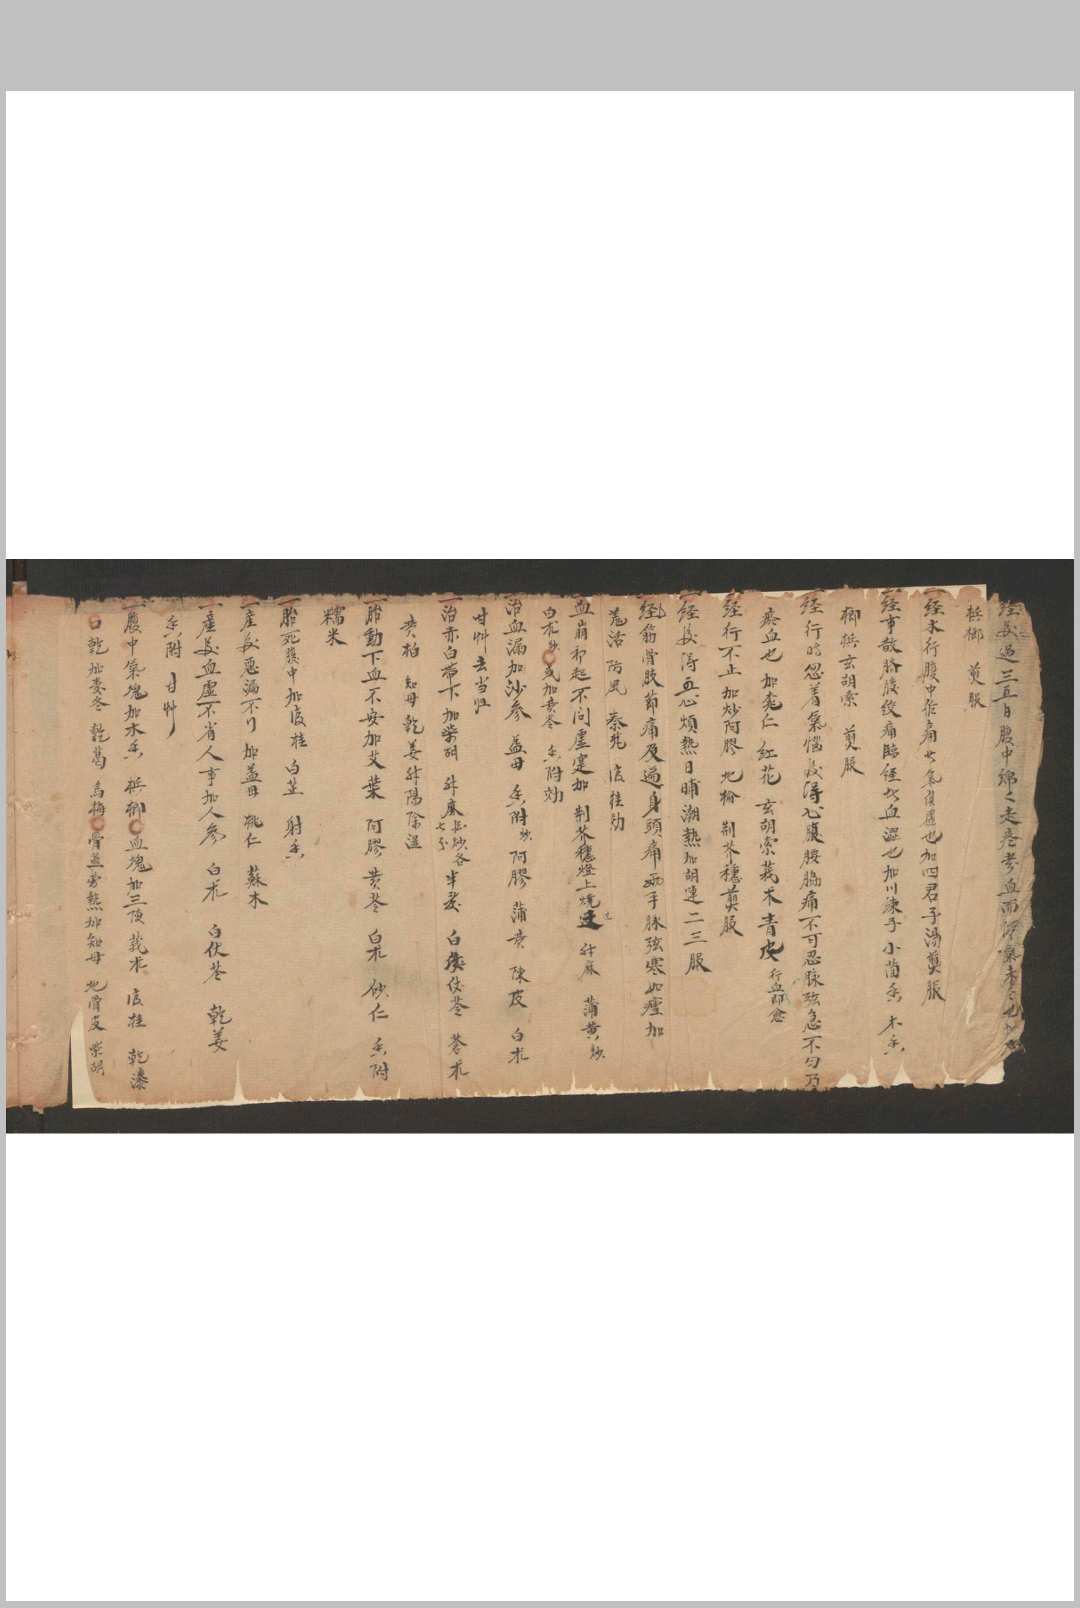 経後過三五日腹中綿〻走疼者血而
梹榔 煎服
一経水行腹中作痛者氣復虛也加四君子湯煎服
一経事欲將臍腹絞痛臨経者血澀也加川練子 小茴香 木香
榔梹玄胡索 煎服
一経行時忽着氣惱後得心腹腰脇痛不可忍脉弦急不勻乃
瘀血也 加桃仁 紅花 玄胡索莪术青皮 行血即愈
一経行不止 加炒阿膠 地榆 荆芥穗煎服
一経後得五心煩熱日晡潮熱加胡連二三服
一経筋骨肢節痛及遍身頭痛 手脉弦寒如瘧加
羗活 防風 秦艽 官桂効
一血崩初起不问虛寔加 荆芥穗燈上燒 升麻 蒲黃炒
白术炒 或加黄芩 香附効
一治血漏加沙参 益母 香附炒 阿膠 蒲黄 陳皮 白术
甘艸去当归
一治赤白帶下 加柴胡 升麻 各半炙 白 伏苓 蒼术
黄柏 知母 乾姜升陽除湿
一胎動下血不安加艾葉 阿膠 黄芩 白术 砂仁 香附
糯米
一胎死腹中加官桂 白芷 射香
一産後惡漏不行 加益母 桃仁 蘇木
一産後血虛不省人事加人參 白术 白伏苓 乾姜
香附 甘艸
一腹中氣塊加木香 梹榔 血塊加三陵 莪术 官桂 乾漆
口乾加麥冬 乾葛 烏梅 骨蒸劳熱加知母 地骨皮 柴胡